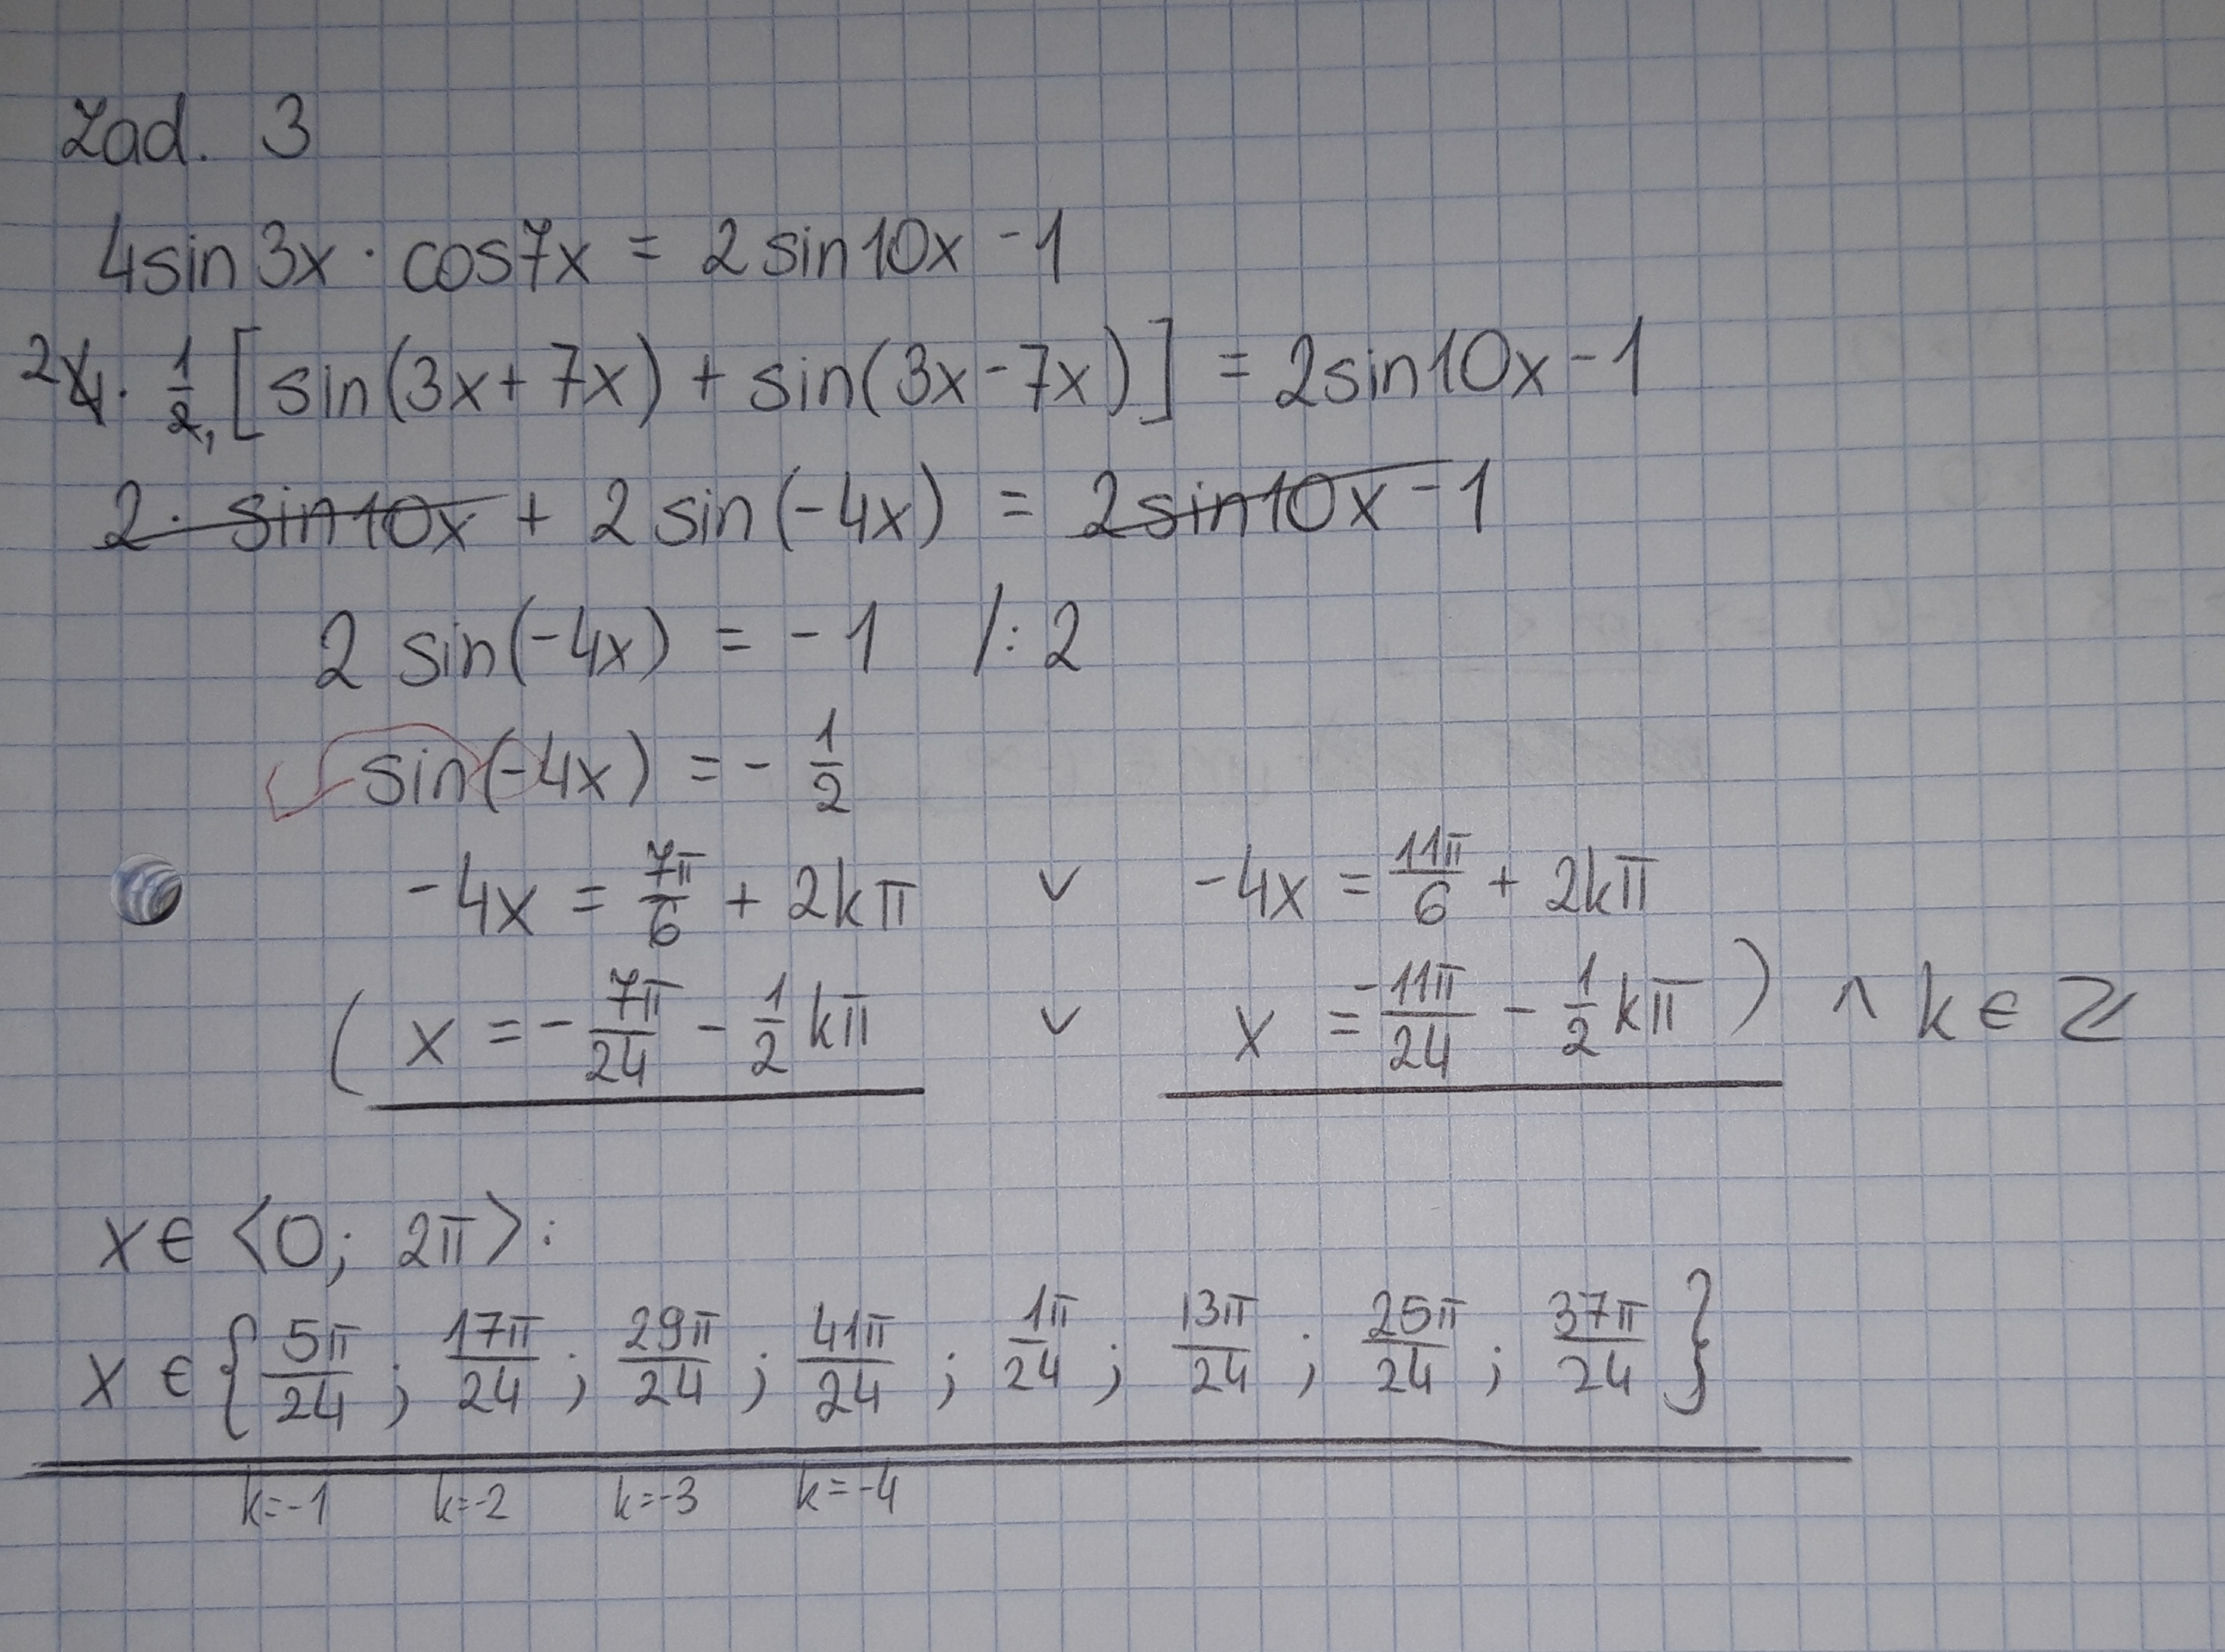 Zad. 3
4sin3x · cos7x = 2sin10x - 1
2 4 · 1/2, [sin(3x+7x) + sin(3x-7x)] = 2sin10x - 1
2 · sin10x + 2sin(-4x) = 2sin10x - 1
2 sin(-4x) = -1 /:2
sin(-4x) = - 1/2
-4x = 7π/6 + 2kπ ∨ -4x = 11π/6 + 2kπ
(x = - 7π/24 - 1/2 kπ ∨ x = -11π/24 - 1/2 kπ) ∧ k ∈ Z
x ∈ <0; 2π>:
x ∈ {5π/24; 17π/24; 29π/24; 41π/24; 1π/24; 13π/24; 25π/24; 37π/24}
k=-1 k=-2 k=-3 k=-4